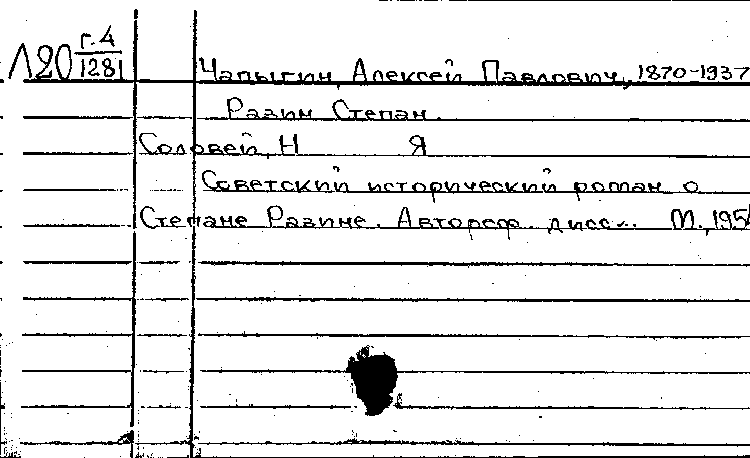 Л20 г.4/1281
Чапыгин, Алексей Павлович, 1870-1937
Разин Степан.
Соловей, Н Я
Советский исторический роман о
Степане Разине. Автореф. дисс... М., 195